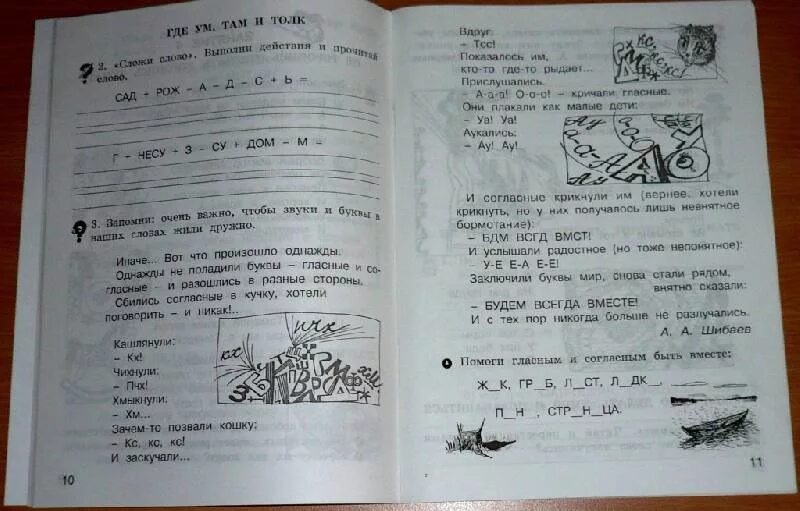 ГДЕ УМ, ТАМ И ТОЛК
2. «Сложи слово». Выполни действия и прочитай
слово.
САД + РОЖ – А – Д – С + Ь =
Г + НЕСУ + З – СУ + ДОМ – М =
3. Запомни: очень важно, чтобы звуки и буквы в
наших словах жили дружно.
Иначе... Вот что произошло однажды.
Однажды не поладили буквы – гласные и со-
гласные – и разошлись в разные стороны.
Сбились согласные в кучку, хотели
поговорить – и никак!..
Кашлянули:
– Кх!
Чихнули:
– Пчх!
Хмыкнули:
– Хм...
Зачем-то позвали кошку:
– Кс, кс, кс!
И заскучали...
кх
ипчх
10
Вдруг:
– Тсс!
Показалось им,
кто-то где-то рыдает...
Прислушались.
– А-а-а! О-о-о! – кричали гласные.
Они плакали как малые дети:
– Уа! Уа!
Аукались:
– Ау! Ау!
кс, кс, кс!
Ау
а-а-А
И согласные крикнули им (вернее, хотели
крикнуть, но у них получалось лишь невнятное
бормотание):
– БДМ ВСГД ВМСТ!
И услышали радостное (но тоже непонятное):
– У-Е Е-А Е-Е!
Заключили буквы мир, снова стали рядом,
внятно сказали:
– БУДЕМ ВСЕГДА ВМЕСТЕ!
И с тех пор никогда больше не разлучались.
А. А. Шибаев
Помоги гласным и согласным быть вместе:
Ж_К, ГР_Б, Л_СТ, Л_ДК_,
П_Н_, СТР_Н_ЦА.
11